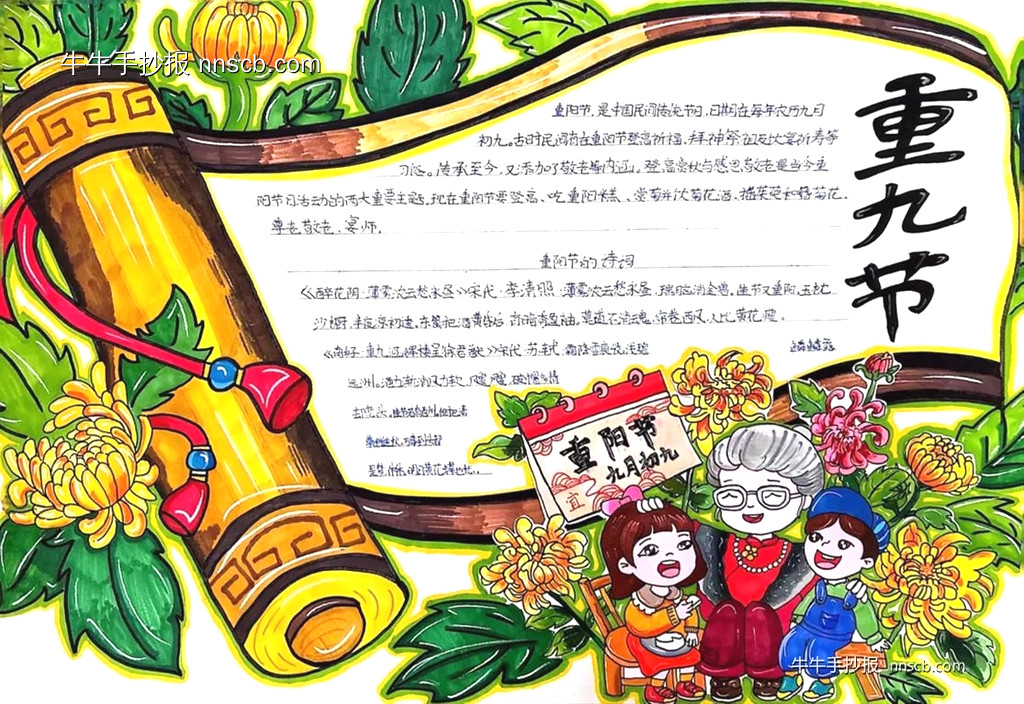 牛牛手抄报 nnscb.com
重九节
重阳节,是中国民间传统节日,日期在每年农历九月
初九。古时民间有在重阳节登高祈福、拜神祭祖及饮宴祈寿等
习俗。传承至今,又添加了敬老等内涵。登高赏秋与感恩敬老是当今重
阳节日活动的两大重要主题,现在重阳节要登高、吃重阳糕、赏菊并饮菊花酒、插茱萸和簪菊花、
尊老敬老、宴师。
重阳节的诗词
《醉花阴·薄雾浓云愁永昼》宋代·李清照 薄雾浓云愁永昼,瑞脑消金兽。佳节又重阳,玉枕
纱橱,半夜凉初透。东篱把酒黄昏后,有暗香盈袖。莫道不消魂,帘卷西风,人比黄花瘦。
《南乡·重九涵辉楼呈徐君猷》宋代·苏轼 霜降水痕收。浅碧
远洲。酒力渐消风力软,飕飕,破帽多情
却恋头。
重阳节
九月初九
宜
牛牛手抄报 nnscb.com